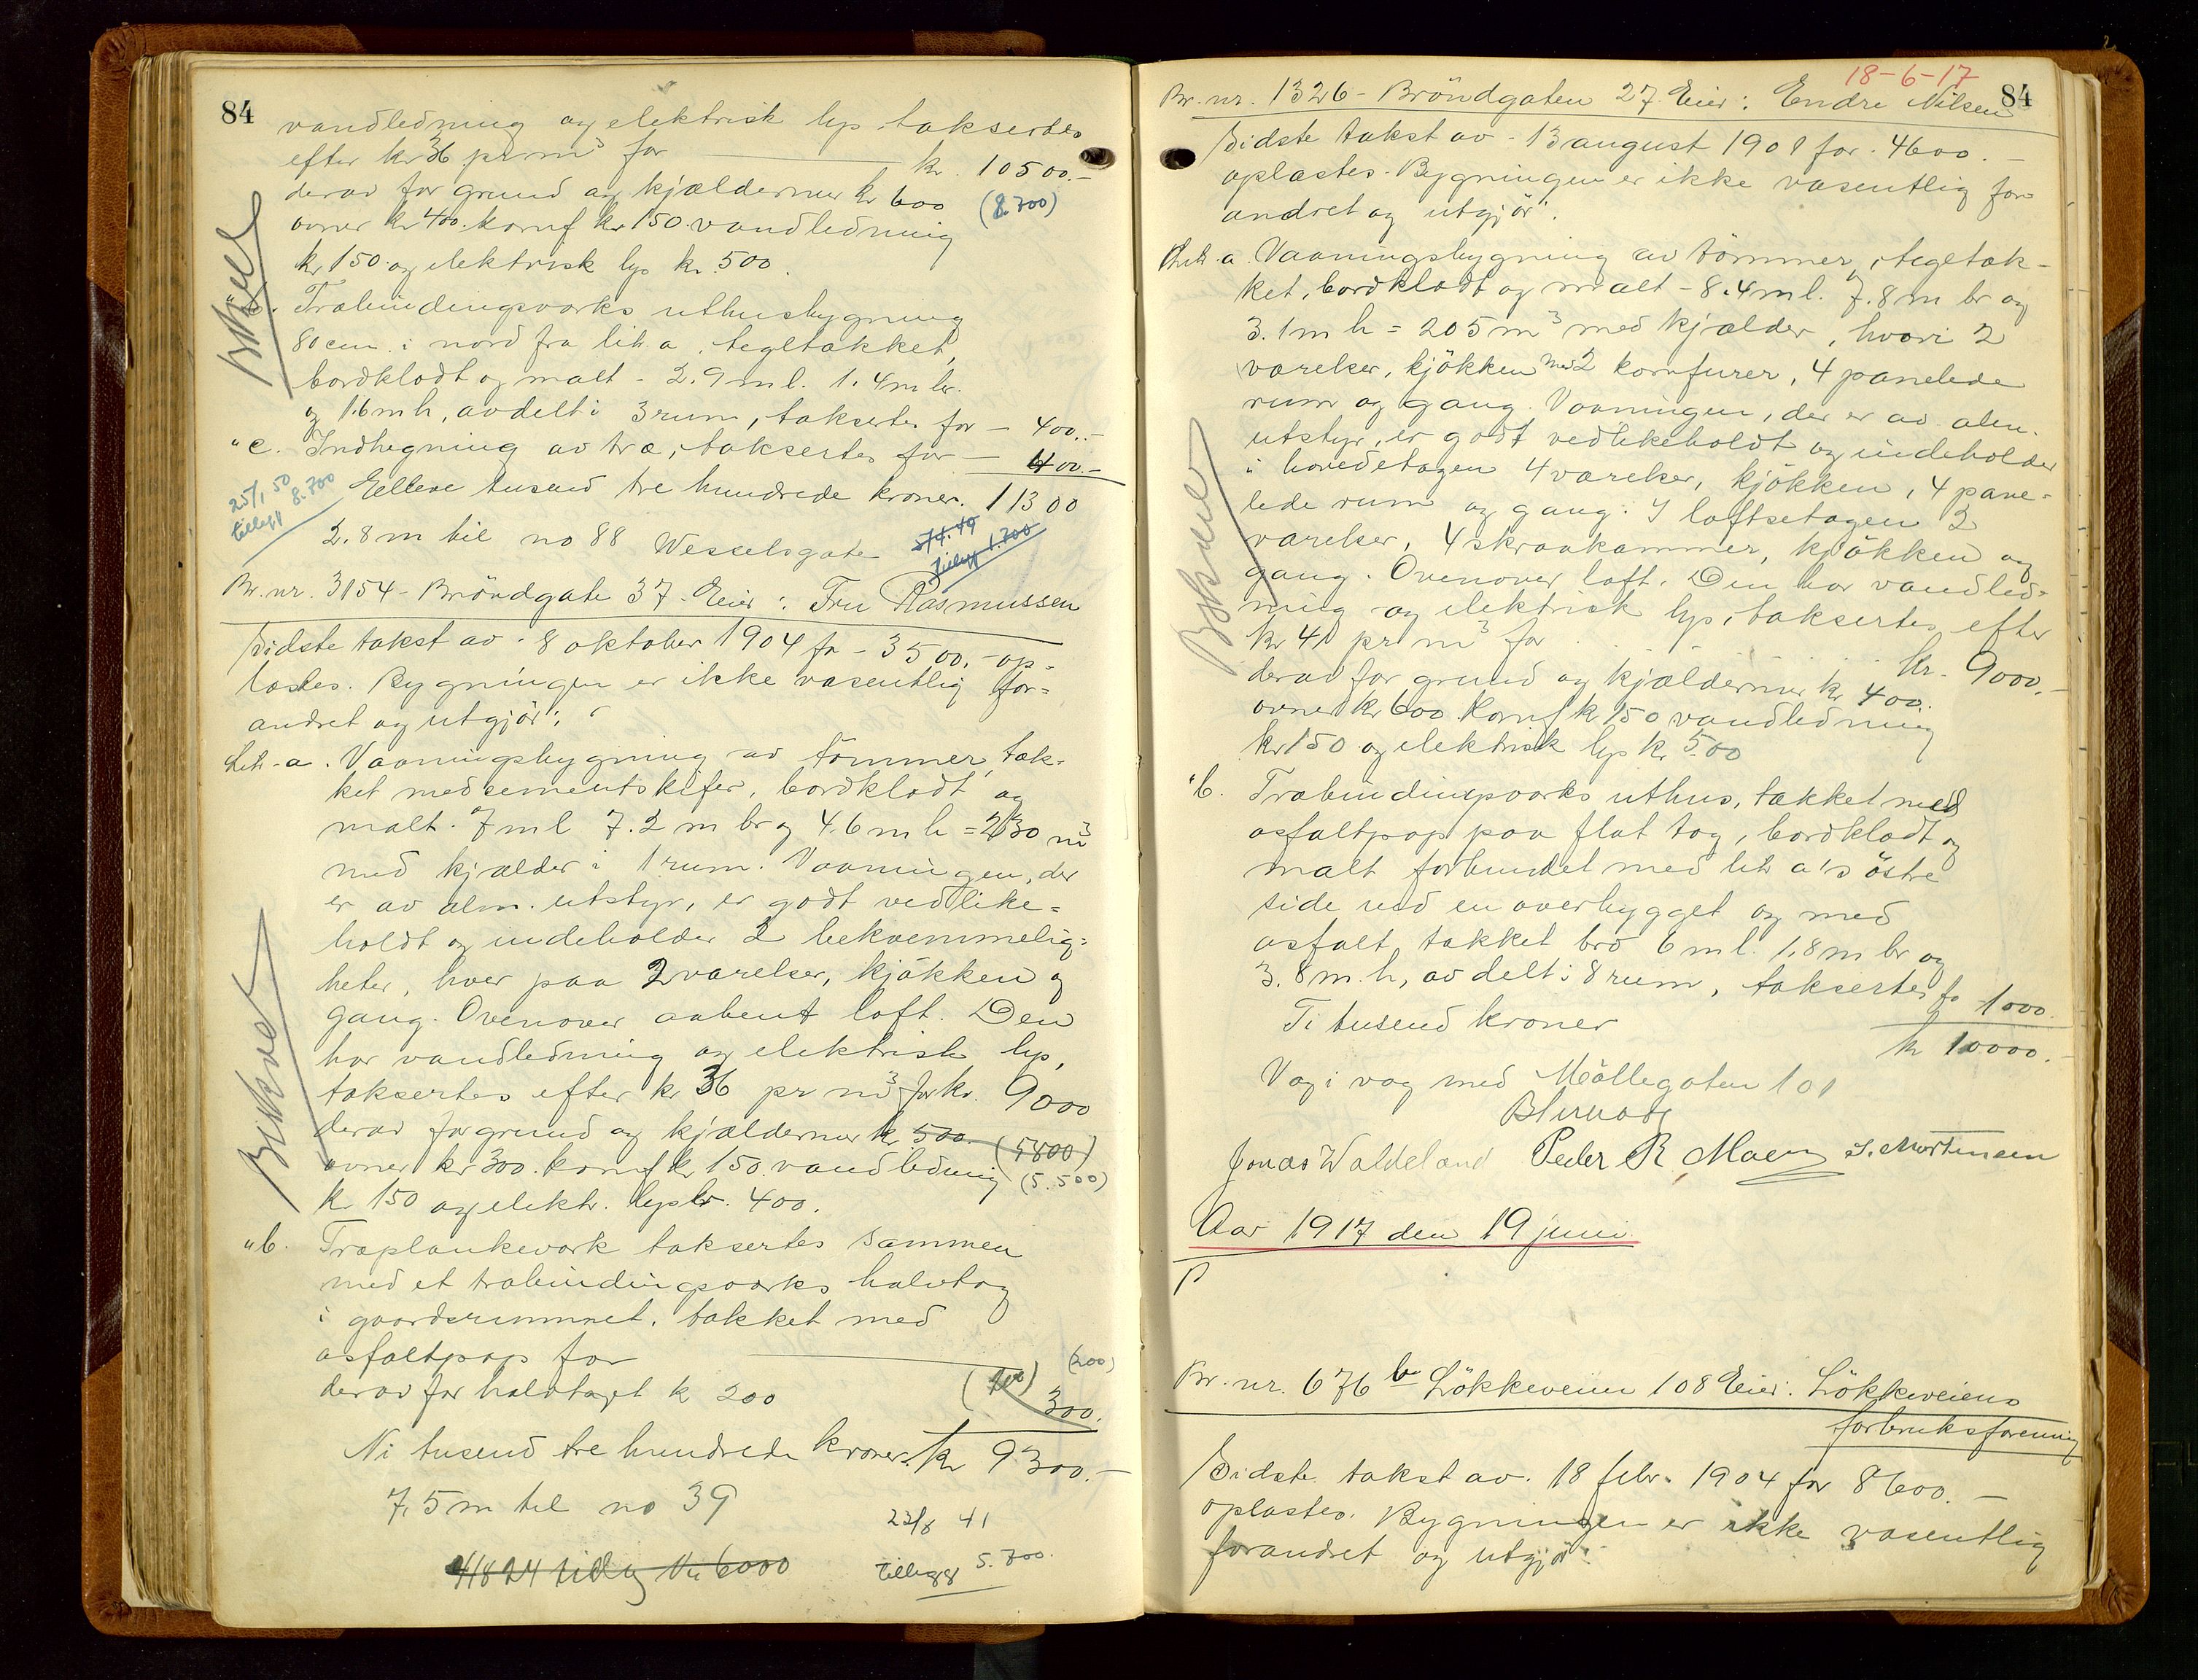 84
vandledning og elektrisk lys taksertes
efter kr 36 pr m³ for kr. 10500.-
derav for grund og kjældermur kr 600 (8.700)
ovner kr 400. komf kr 150. vandledning
kr 150. og elektrisk lys kr. 500.
Træbindingsværks uthusbygning
80 cm. i nord fra lit. a, tegltækket,
bordklædt og malt - 2.9 m l. 1.4 m br.
og 1.6 m h, avdelt i 3 rum, taksertes for - 400.-
" c. Indhegning av træ, taksertes for - 400.-
Elleve tusend tre hundrede kroner. 11300
25/1 50
tillegg 8.700
2.8 m til no 88 Wesselsgate
tillegg 1.700
Br. nr. 3154 - Bröndgate 37 - Eier: Fru Rasmussen
Sidste takst av - 8 oktober 1904 for - 3500.- op-
læstes. Bygningen er ikke væsentlig for=
andret og utgjör:
Lit. a. Vaaningsbygning av tömmer, tæk-
ket med sementskifer, bordklædt og
malt. 7 m l 7.2 m br og 4.6 m h = 230 m³
med kjælder i 1 rum. Vaaningen, der
er av alm. utstyr, er godt vedlike=
holdt og indeholder 2 bekvemmelig=
heter, hver paa 2 værelser, kjökken og
gang. Ovenover aabent loft. Den
har vandledning og elektrisk lys,
taksertes efter kr 36 pr m³ for kr. 9000
derav for grund og kjældermur kr 500. (5800)
ovner kr 300. komf kr 150. vandledning (5.500)
kr 150 og elektr. lys kr. 400.
" b. Træplankeværk taksertes sammen
med et træbindingsværks halvtag
i gaardsrummet, tækket med
asfaltpap for (200)
derav for halvtaget kr 200 300.
Ni tusend tre hundrede kroner. kr 9300.-
7.5 m til no 39
23/8 41
tillegg 5.700.
18-6-17
84
Br. nr. 1326 - Bröndgaten 27. Eier: Endre Nilsen
Sidste takst av - 13 august 1901 for - 4600.-
oplæstes. Bygningen er ikke væsentlig for=
andret og utgjör:
Lit. a. Vaaningsbygning av tömmer, tegltæk-
ket, bordklædt og malt - 8.4 m l. 7.8 m br og
3.1 m h = 205 m³ med kjælder, hvori 2
værelser, kjökken med 2 komfurer, 4 panelede
rum og gang. Vaaningen, der er av alm.
utstyr, er godt vedlikeholdt og indeholder
i hovedetagen 4 værelser, kjökken, 4 pane=
lede rum og gang. I loftsetagen 3
værelser, 4 skraakammer, kjökken og
gang. Ovenover loft. Den har vandled=
ning og elektrisk lys, taksertes efter
kr 41 pr m³ for kr. 9000.-
derav for grund og kjældermur kr 400.
ovner kr 600 komf kr 150 vandledning
kr 150 og elektrisk lys kr. 500
" b. Træbindingsværks uthus, tækket med
asfaltpap paa flat tag, bordklædt og
malt forbundet med lit a's östre
side ved en overbygget og med
asfalt tækket bro 6 m l. 1.8 m br og
3.8 m. h, avdelt i 8 rum, taksertes for 1000.
Ti tusend kroner kr 10000.-
Væg i væg med Möllegaten 101
Jonas Waldeland Peder R. Moen S. Mortensen
Aar 1917 den 19 juni
Br. nr. 676 b Lökkeveien 108 Eier: Lökkeveiens
forbruksforening
Sidste takst av. 18 febr. 1904 for 8600.-
oplæstes. Bygningen er ikke væsentlig
forandret og utgjör: